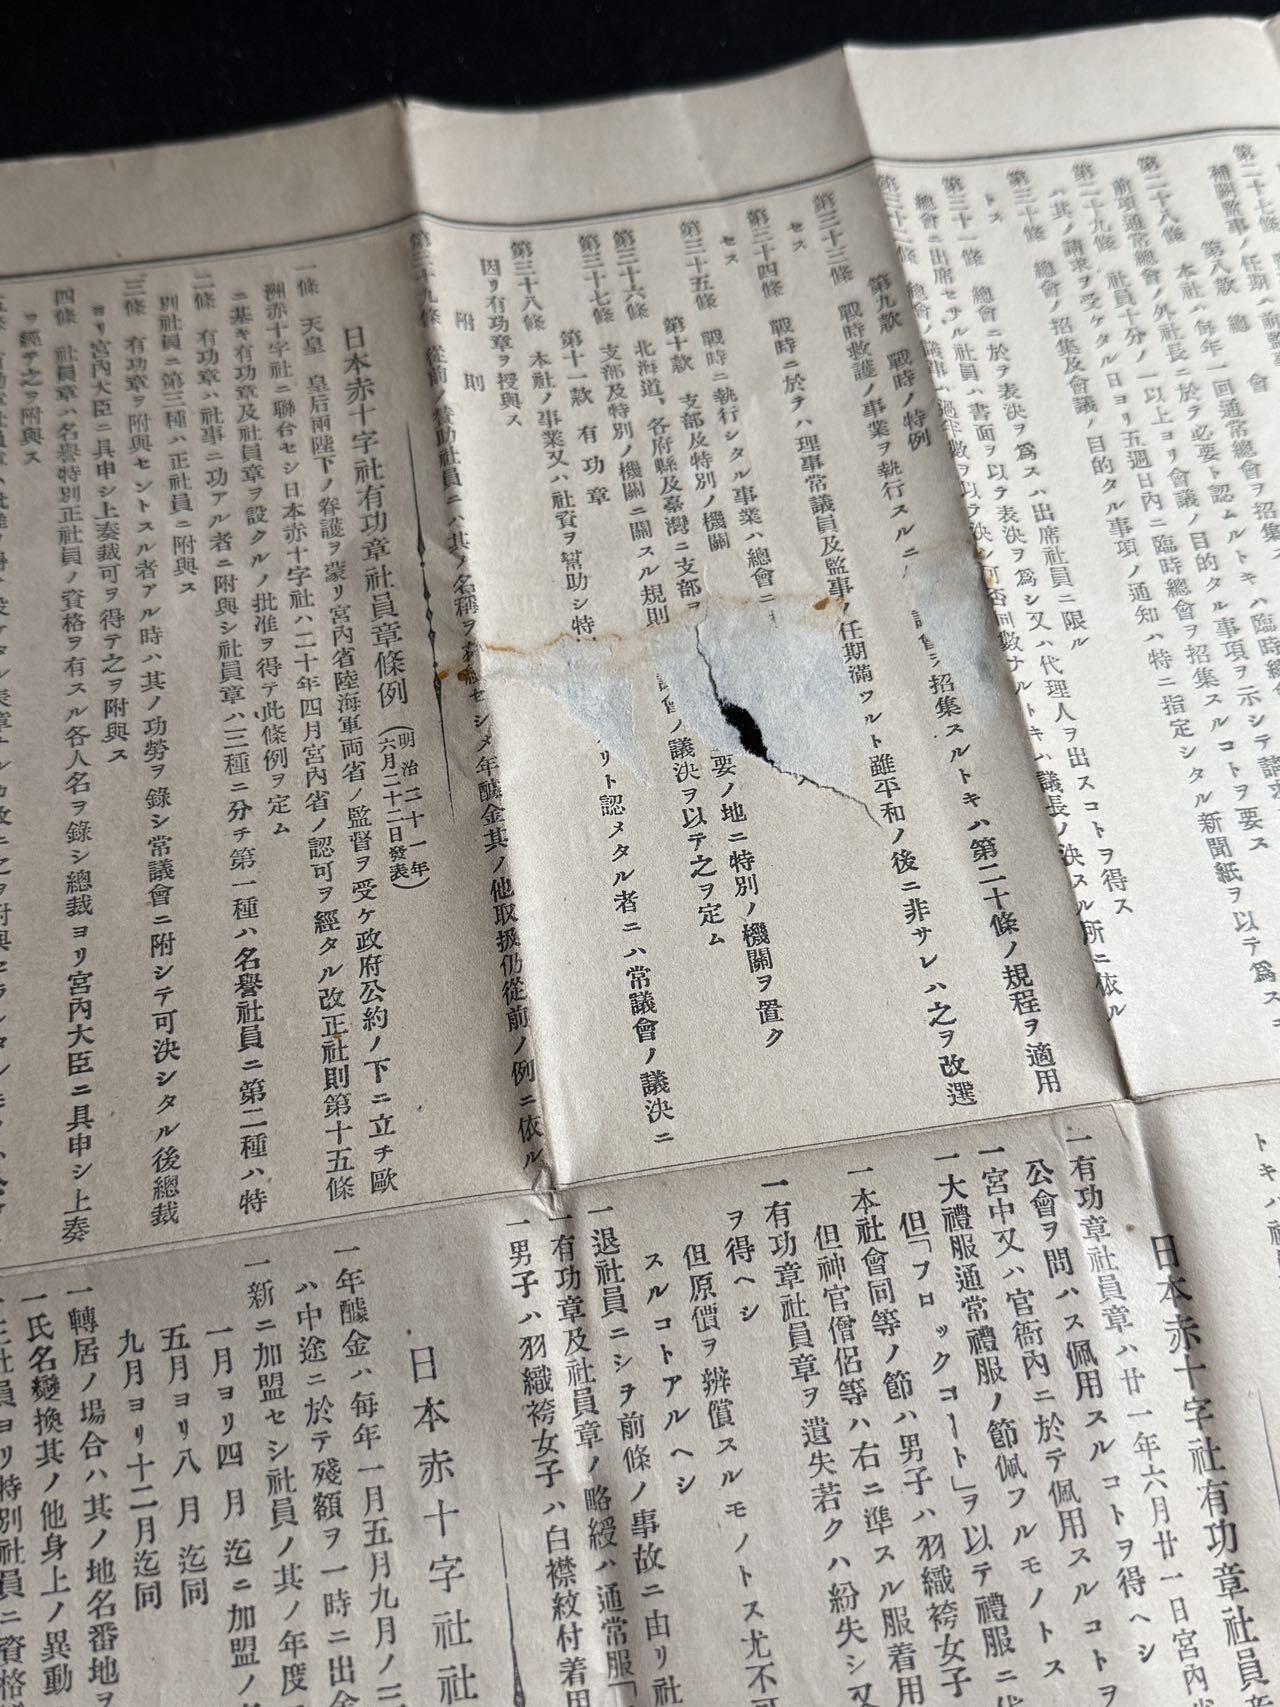 第二十七條
補闕監事ノ任期ハ前監事
第八款　總會
第二十八條　本社ハ毎年一回通常總會ヲ招集
前項通常總會ノ外社長ニ於テ必要ト認ムルトキハ臨時總會
社員十分ノ一以上ヨリ會議ノ目的タル事項ヲ示シテ請求
ハ其ノ請求ヲ受ケタル日ヨリ五週日內ニ臨時總會ヲ招集スルコトヲ要ス
第二十九條　總會ノ招集及會議ノ目的タル事項ノ通知ハ特ニ指定シタル新聞紙ヲ以テ爲ス
第三十條　總會ニ於テ表決ヲ爲スハ出席社員ニ限ル
トス
第三十一條　總會ニ出席セサル社員ハ書面ヲ以テ表決ヲ爲シ又ハ代理人ヲ出スコトヲ得ス
第三十二條　總會ノ議事ハ過半數ヲ以テ決シ可否同數ナルトキハ議長ノ決スル所ニ依ル
第九款　戰時ノ特例
第三十三條　戰時救護ノ事業ヲ執行スルニ 議會ヲ招集スルトキハ第二十條ノ規程ヲ適用
セス
第三十四條　戰時ニ於テハ理事常議員及監事ノ任期滿ツルト雖平和ノ後ニ非サレハ之ヲ改選
セス
第三十五條　戰時ニ執行シタル事業ハ總會ニ
第十款　支部及特別ノ機關
第三十六條　北海道、各府縣及臺灣ニ支部ヲ 要ノ地ニ特別ノ機關ヲ置ク
第三十七條　支部及特別ノ機關ニ關スル規則 議會ノ議決ヲ以テ之ヲ定ム
第十一款　有功章
第三十八條　本社ノ事業又ハ社資ヲ幫助シ特 リト認メタル者ニハ常議會ノ議決ニ
因リ有功章ヲ授與ス
附則
第三十九條　從前ノ贊助社員ニハ其ノ名稱ヲ セシメ年醵金其ノ他取扱仍從前ノ例ニ依ル
日本赤十字社有功章社員章條例（明治二十一年六月二十二日發表）
一條　天皇　皇后兩陛下ノ眷護ヲ蒙リ宮內省陸海軍兩省ノ監督ヲ受ケ政府公約ノ下ニ立チ歐
洲赤十字社ニ聯合セシ日本赤十字社ハ二十年四月宮內省ノ認可ヲ經タル改正社則第十五條
ニ基キ有功章及社員章ヲ設クルノ批准ヲ得テ此條例ヲ定ム
二條　有功章ハ社事ニ功アル者ニ附與シ社員章ハ三種ニ分チ第一種ハ名譽社員ニ第二種ハ特
別社員ニ第三種ハ正社員ニ附與ス
三條　有功章ヲ附與セントスル者アル時ハ其ノ功勞ヲ錄シ常議會ニ附シテ可決シタル後總裁
ヨリ宮內大臣ニ具申シ上奏裁可ヲ得テ之ヲ附與ス
四條　社員章ハ名譽特別正社員ノ資格ヲ有スル各人名ヲ錄シ總裁ヨリ宮內大臣ニ具申シ上奏
ヲ經テ之ヲ附與ス
トキハ
日本赤十字社有功章社員
一有功章社員章ハ廿一年六月廿一日宮內
公會ヲ問ハス佩用スルコトヲ得ヘシ
一宮中又ハ官衙內ニ於テ佩用スルコトヲ
一大禮服通常禮服ノ節佩フルモノトス
但「フロックコート」ヲ以テ禮服ニ代
一本社會同等ノ節ハ男子ハ羽織袴女子
但神官僧侶等ハ右ニ準スル服着用
一有功章社員章ヲ遺失若クハ紛失シ又
ヲ得ヘシ
但原價ヲ辨償スルモノトス尤不可
スルコトアルヘシ
一退社員ニシヲ前條ノ事故ニ由リ社
一有功章及社員章ノ略綬ハ通常服「
一男子ハ羽織袴女子ハ白襟紋付着用
日本赤十字社社
一年醵金ハ毎年一月五月九月ノ三
ハ中途ニ於テ殘額ヲ一時ニ出金
一新ニ加盟セシ社員ノ其ノ年度
一月ヨリ四月迄ニ加盟ノ
五月ヨリ八月迄同
九月ヨリ十二月迄同
一轉居ノ場合ハ其ノ地名番地ヲ
一氏名變換其ノ他身上ノ異動
一正社員ヨリ特別社員ニ資格